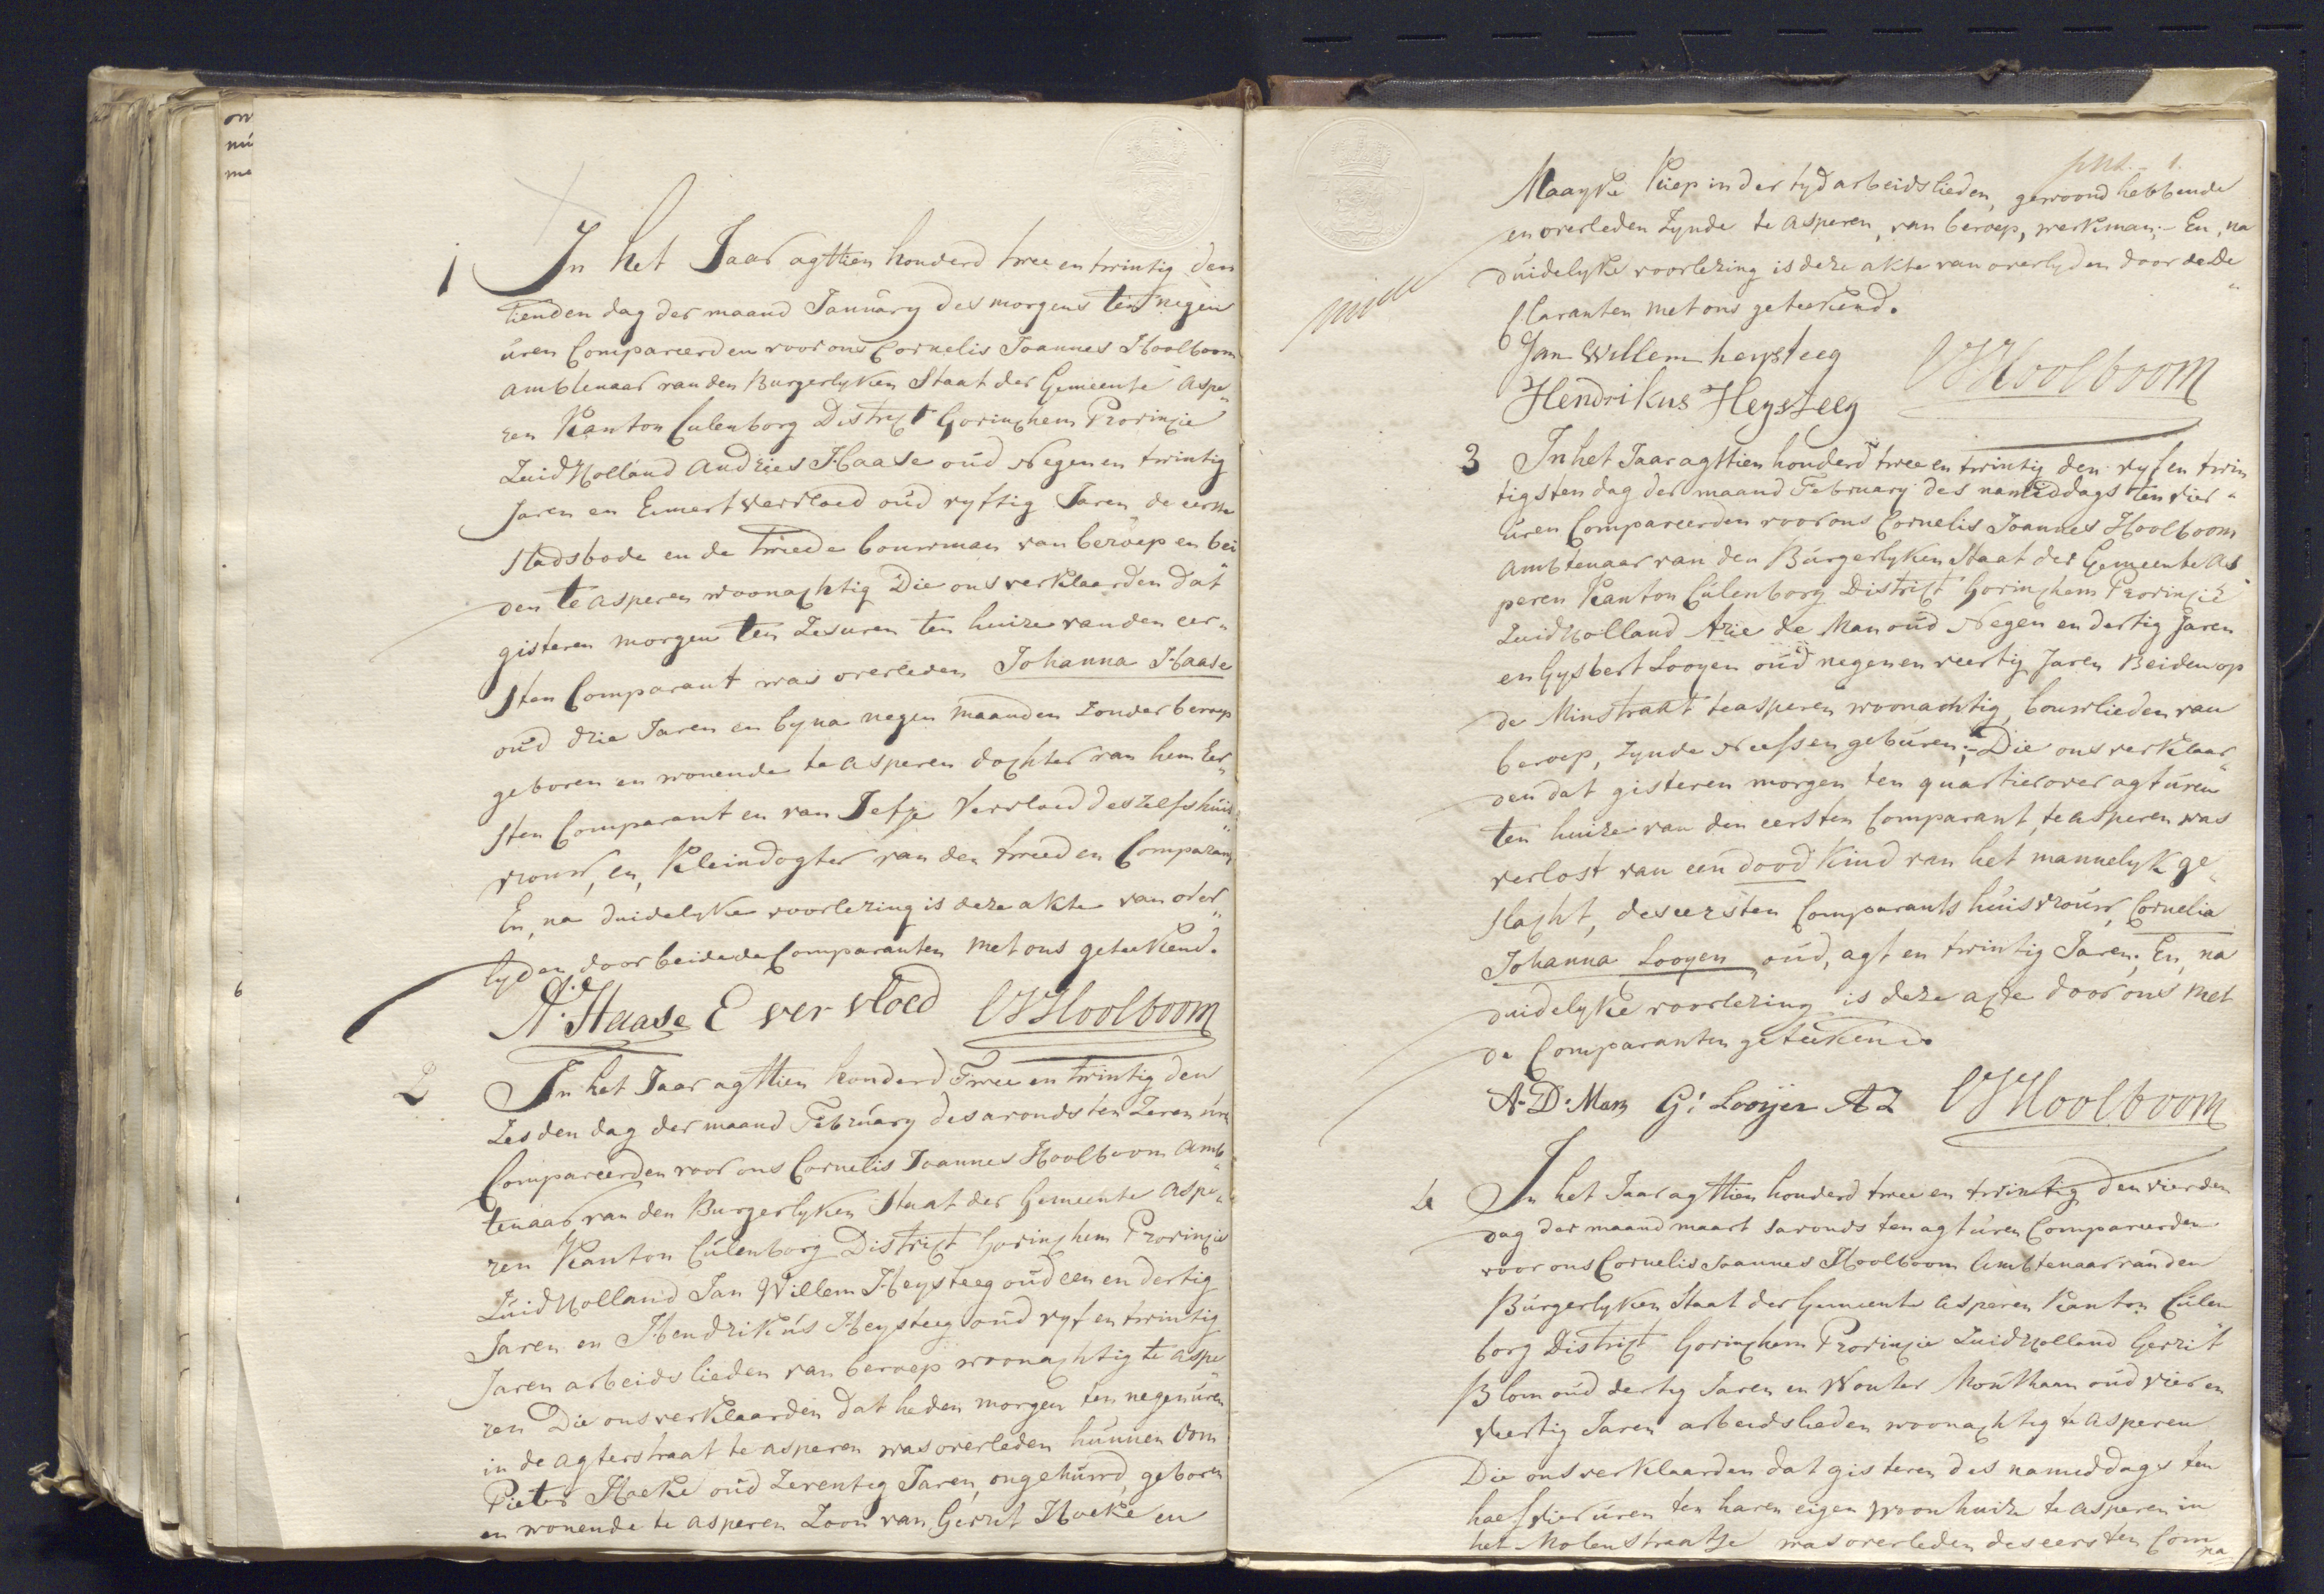 1 In het Jaar agttien honderd twee en twintig den
tienden dag der maand January des morgens ten negen
uren Compareerden voor ons Cornelis Joannes Hoolboom
ambtenaar van den Burgerlyken Staat der Gemeente Aspe„
ren Kanton Culenborg District Gorinchem Provincie
Zuid Holland Andries Haase oud Negen en twintig
Jaren en Evert Vervloed oud vyftig Jaren de eerste
Stadsbode en de Tweede bouwman van beroep en bei
den te Asperen woonachtig Die ons verklaarden dat
gisteren morgen ten Zes uren ten huize van den eer„
sten Comparant was overleden Johanna Haase
oud drie Jaren en byna negen maanden Zonder beroep
geboren en wonende te Asperen dochter van hem Eer„
sten Comparant en van Jefje Vervloed deszelfs huis„
vrouw, en, Kleindogter van den tweeden Comparant
En, na duidelyke voorlezing is deze akte van over„
lyden door beide de Comparanten met ons geteekend.
A. Haase E ver vloed CJHoolboom
2 In het Jaar agttien honderd Twee en twintig den
Zesden dag der maand February des avonds ten Zeven uren
Compareerden voor ons Cornelis Joannes Hoolboom Amb„
tenaar van den Burgerlyken Staat der Gemeente Aspe„
ren Kanton Culenborg District Gorinchem Provincie
Zuid Holland Jan Willem Heysteeg oud een en dertig
Jaren en Hendrikus Heysteeg oud vyf en twintig
Jaren arbeidslieden van beroep woonachtig te Aspe
ren Die ons verklaarden dat heden morgen ten negen uren
in de agterstraat te Asperen was overleden hunnen Oom
Pieter Hoeke oud Zeventig Jaren, ongehuwd, geboren
en wonende te Asperen Zoon van Gerrit Hoeke en
Maayke Kiep in der tyd arbeidslieden, gewoond hebbende
en overleden Zynde te Asperen, van beroep, werkman;- En, na
duidelyke voorlezing is deze akte van overlyden door de De„
claranten met ons geteekend.
Jan Willem heysteeg
Hendrikus Heysteeg CJHoolboom
3 In het Jaar agttien honderd twee en twintig den vyf en twin
tigsten dag der maand February des namiddags ten vier„
uren Compareerden voor ons Cornelis Joannes Hoolboom
Ambtenaar van den Burgerlyken Staat der Gemeente As„
peren Kanton Culenborg District Gorinchem Provincie
Zuid Holland Arie de Man oud Negen en dertig Jaren
en Gysbert Looyen oud negen en veertig Jaren Beiden op
de Minstraat te Asperen woonachtig, bouwlieden van
beroep, Zynde Neef en geburen;- Die ons verklaar„
den dat gisteren morgen ten quartier over agt uren
ten huize van den eersten Comparant, te Asperen was
verlost van een dood kind van het mannelyk ge„
slacht, des eersten Comparants huisvrouw, Cornelia
Johanna Looyen oud, agt en twintig Jaren; En, na
duidelyke voorlezing is deze acte door ons met
de Comparanten geteekend.
A. D. Man G: Looijen AZ CJHoolboom
4 In het Jaar agttien honderd twee en twintig den vierden
dag der maand maart savonds ten agt uren Compareerden
voor ons Cornelis Joannes Hoolboom Ambtenaar van den
Burgerlyken Staat der Gemeente Asperen Kanton Culen
borg District Gorinchem Provincie Zuid Holland Gerrit
Blom oud dertig Jaren en Wouter Mouthaan oud vier en
veertig Jaren arbeidslieden woonachtig te Asperen
Die ons verklaarden dat gisteren des namiddags ten
half vier uren ten haren eigen woonhuize te Asperen in
het Molenstraatje was overleden des eersten Compa